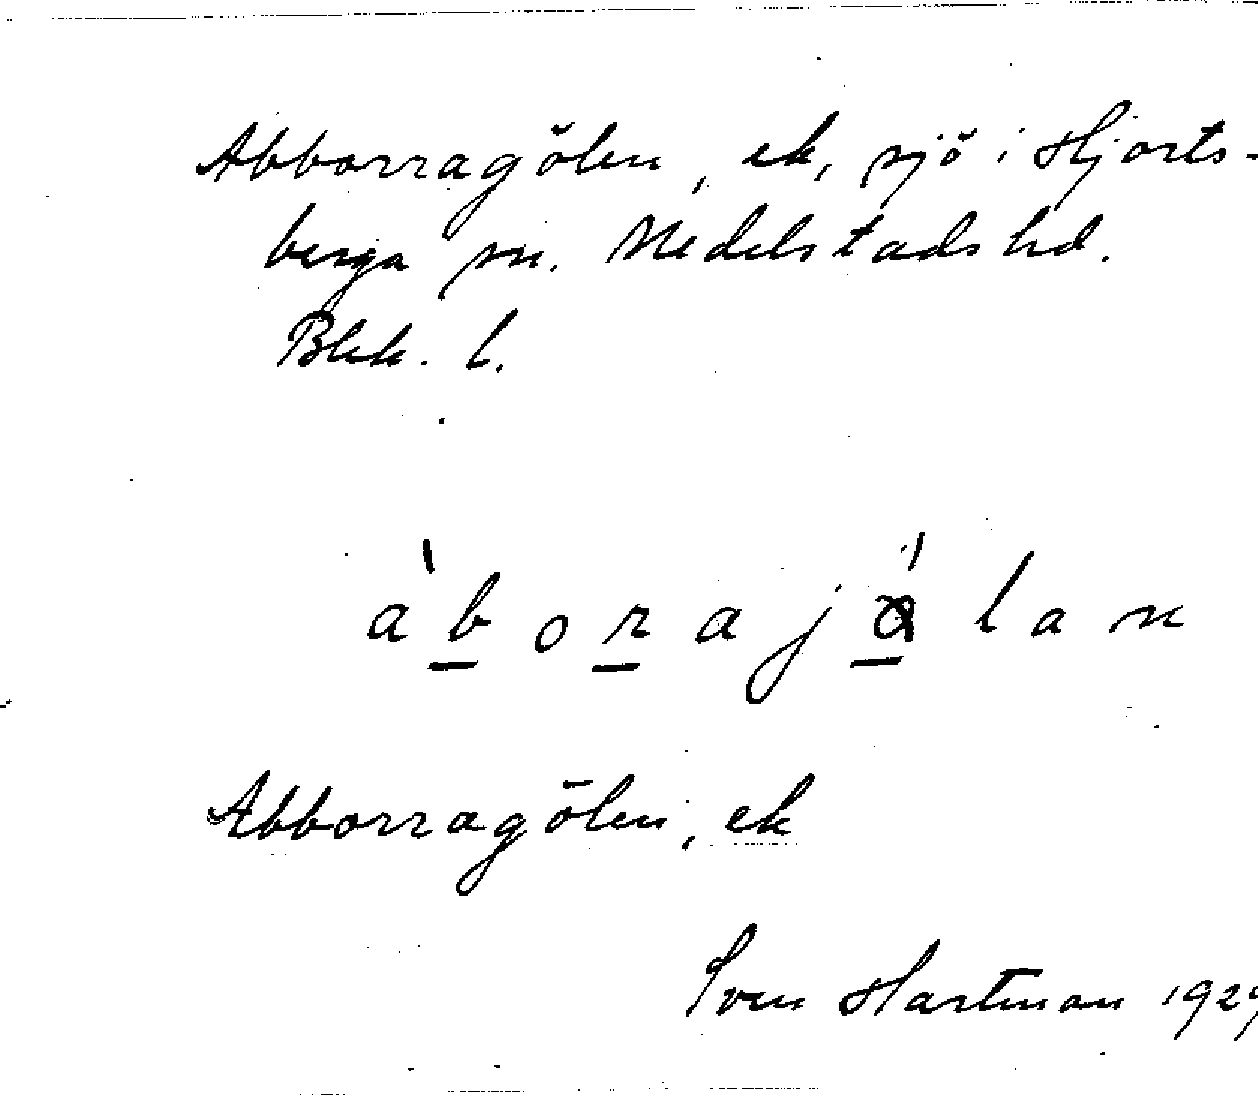 Abborragölen, ek, sjö i Hjorts-
berga sn. Medelstads hd.
Blek. l.
a`borajø´lan
Abborragölen, ek
Sven Hartman 1929